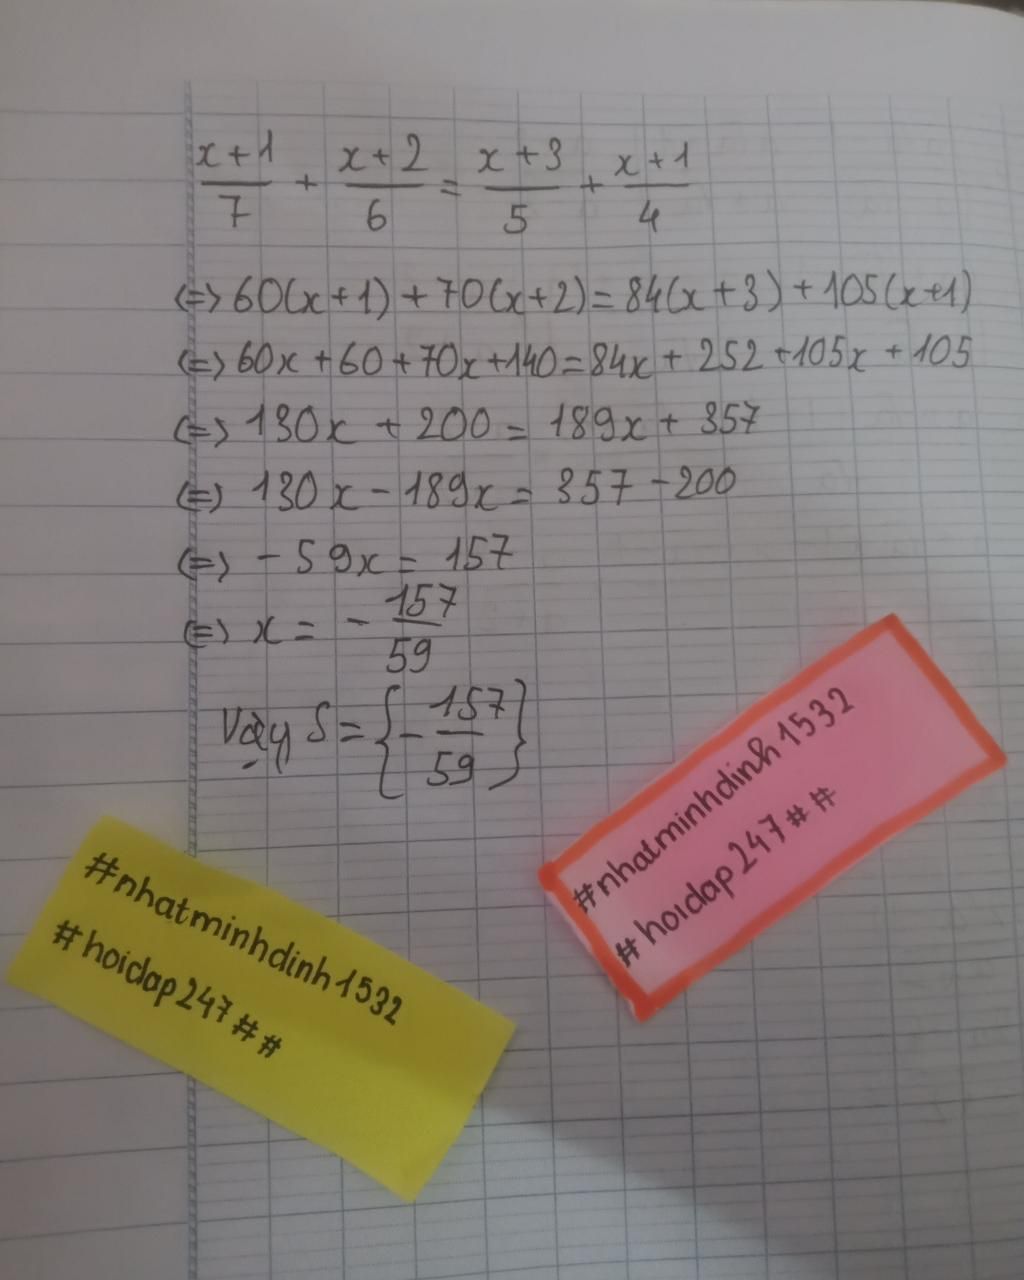 x+1/7 + x+2/6 = x+3/5 + x+1/4
(=) 60(x+1) + 70(x+2) = 84(x+3) + 105(x+1)
(=) 60x + 60 + 70x + 140 = 84x + 252 + 105x + 105
(=) 130x + 200 = 189x + 357
(=) 130x - 189x = 357 - 200
(=) - 59x = 157
(=) x = - 157/59
Vậy S = {- 157/59}
#nhatminhdinh1532
#hoidap247##
#nhatminhdinh1532
#hoidap247##